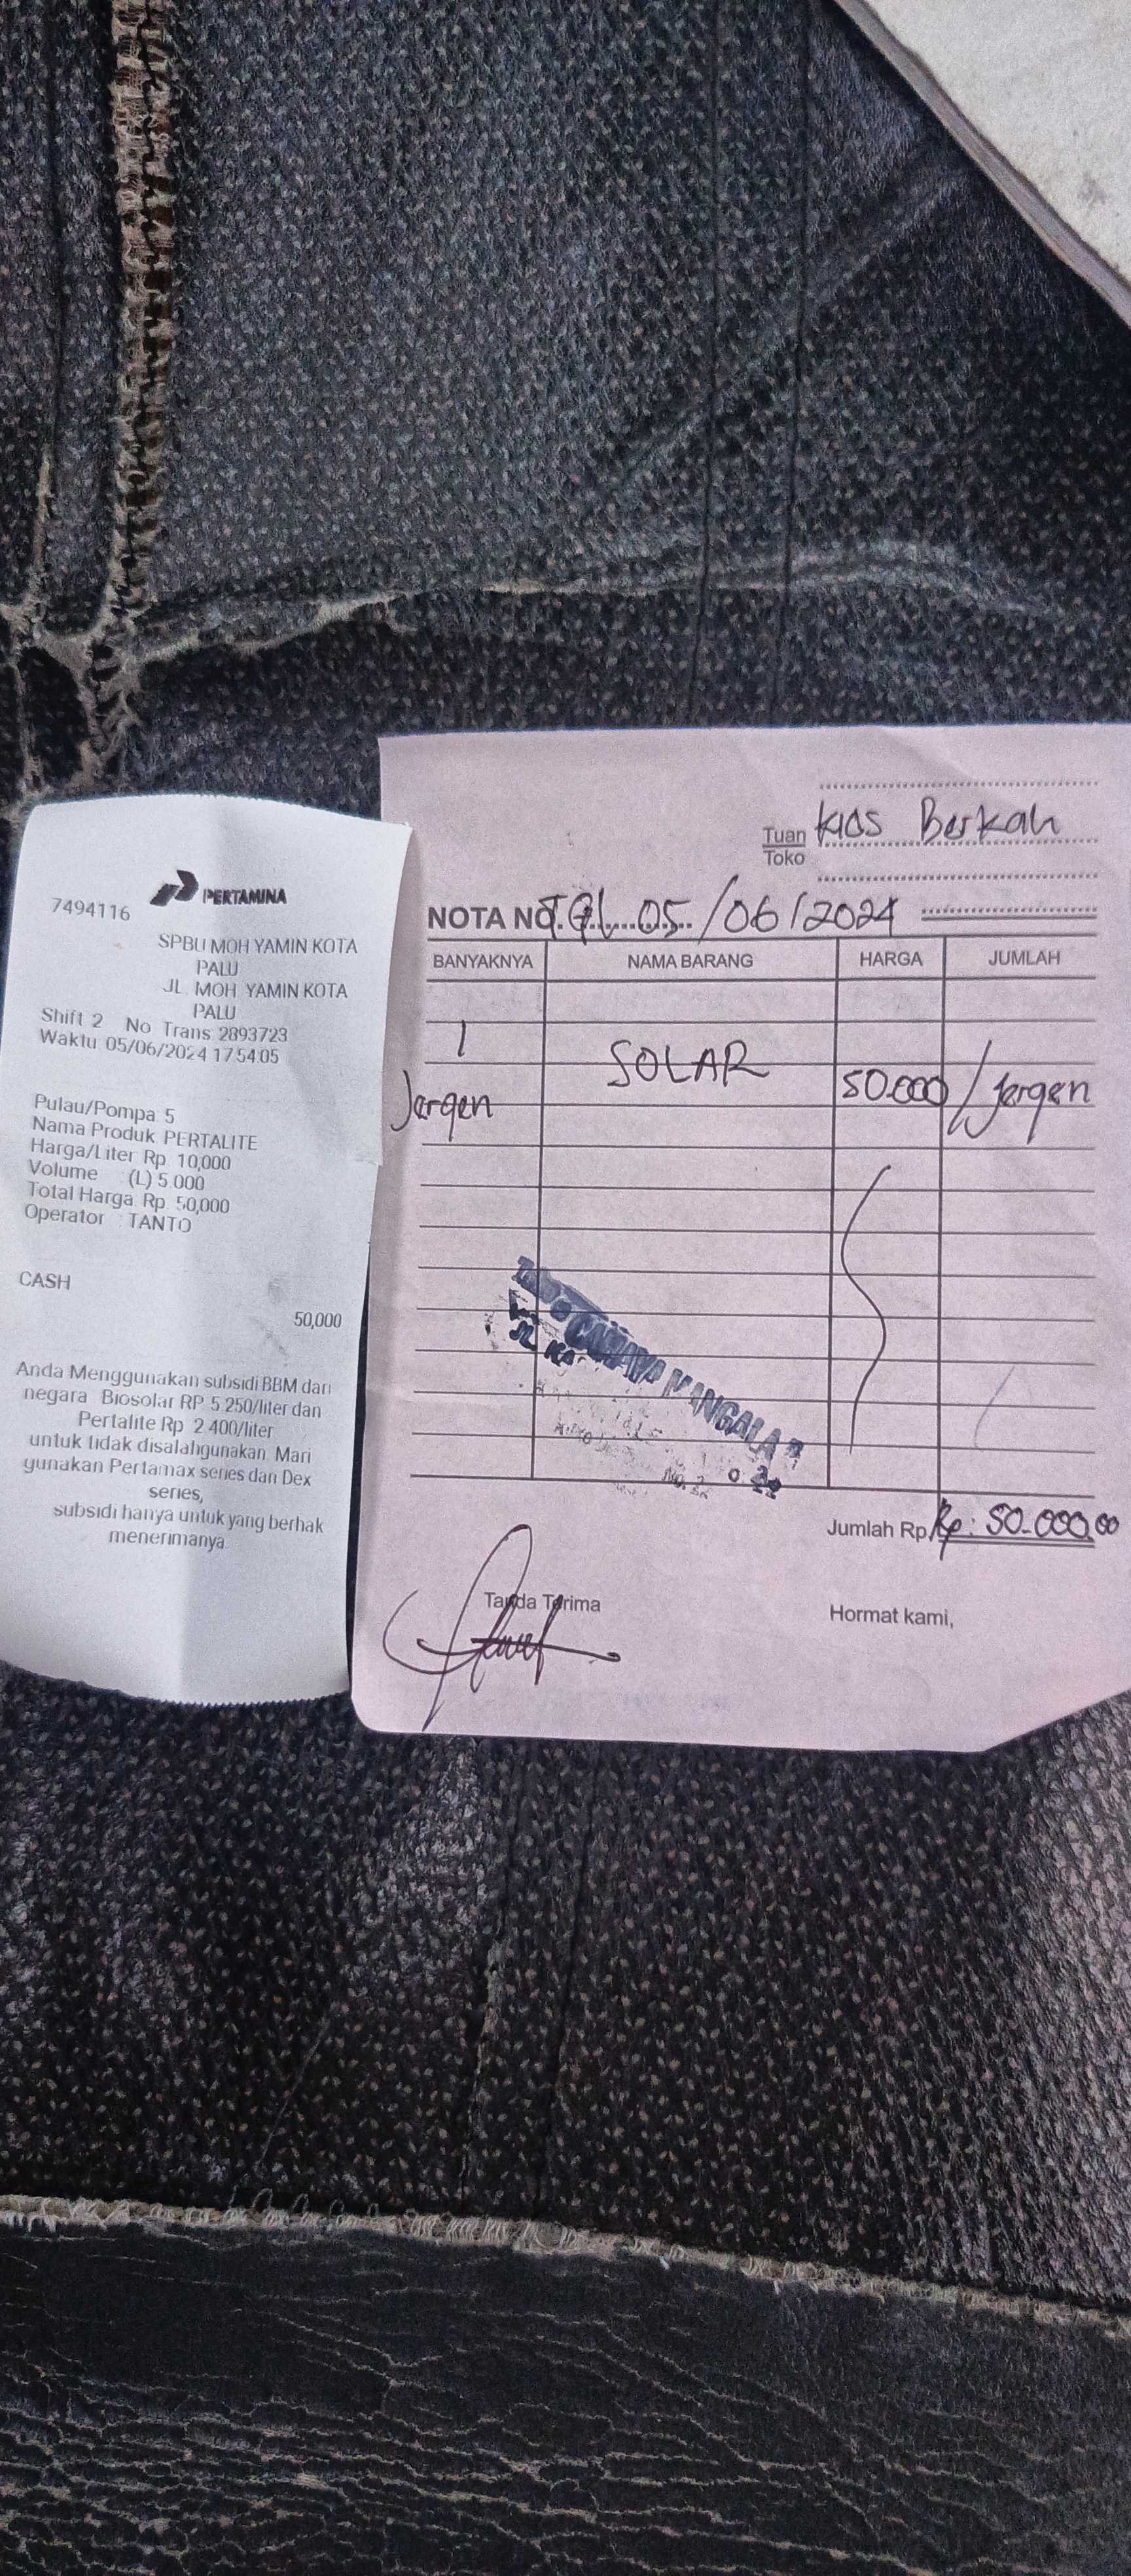 PERTAMINA
7494116
SPBU MOH YAMIN KOTA
PALU
JL. MOH YAMIN KOTA
PALU
Shift 2 No Trans: 2893723
Waktu 05/06/2024 17:54:05
Pulau/Pompa 5
Nama Produk: PERTALITE
Harga/Liter Rp. 10,000
Volume (L) 5.000
Total Harga: Rp. 50,000
Operator : TANTO
CASH
50,000
Anda Menggunakan subsidi BBM dari
negara Biosolar RP 5.250/liter dan
Pertalite Rp 2.400/liter
untuk tidak disalahgunakan. Mari
gunakan Pertamax series dan Dex
series,
subsidi hanya untuk yang berhak
menerimanya.
Tuan Kios Berkah
Toko
NOTA NO. TGL 05/06/2024
BANYAKNYA NAMA BARANG HARGA JUMLAH
1 Jergen SOLAR 50.000 / Jergen
Jumlah Rp. Rp: 50.000.00
Tanda Terima
Hormat kami,